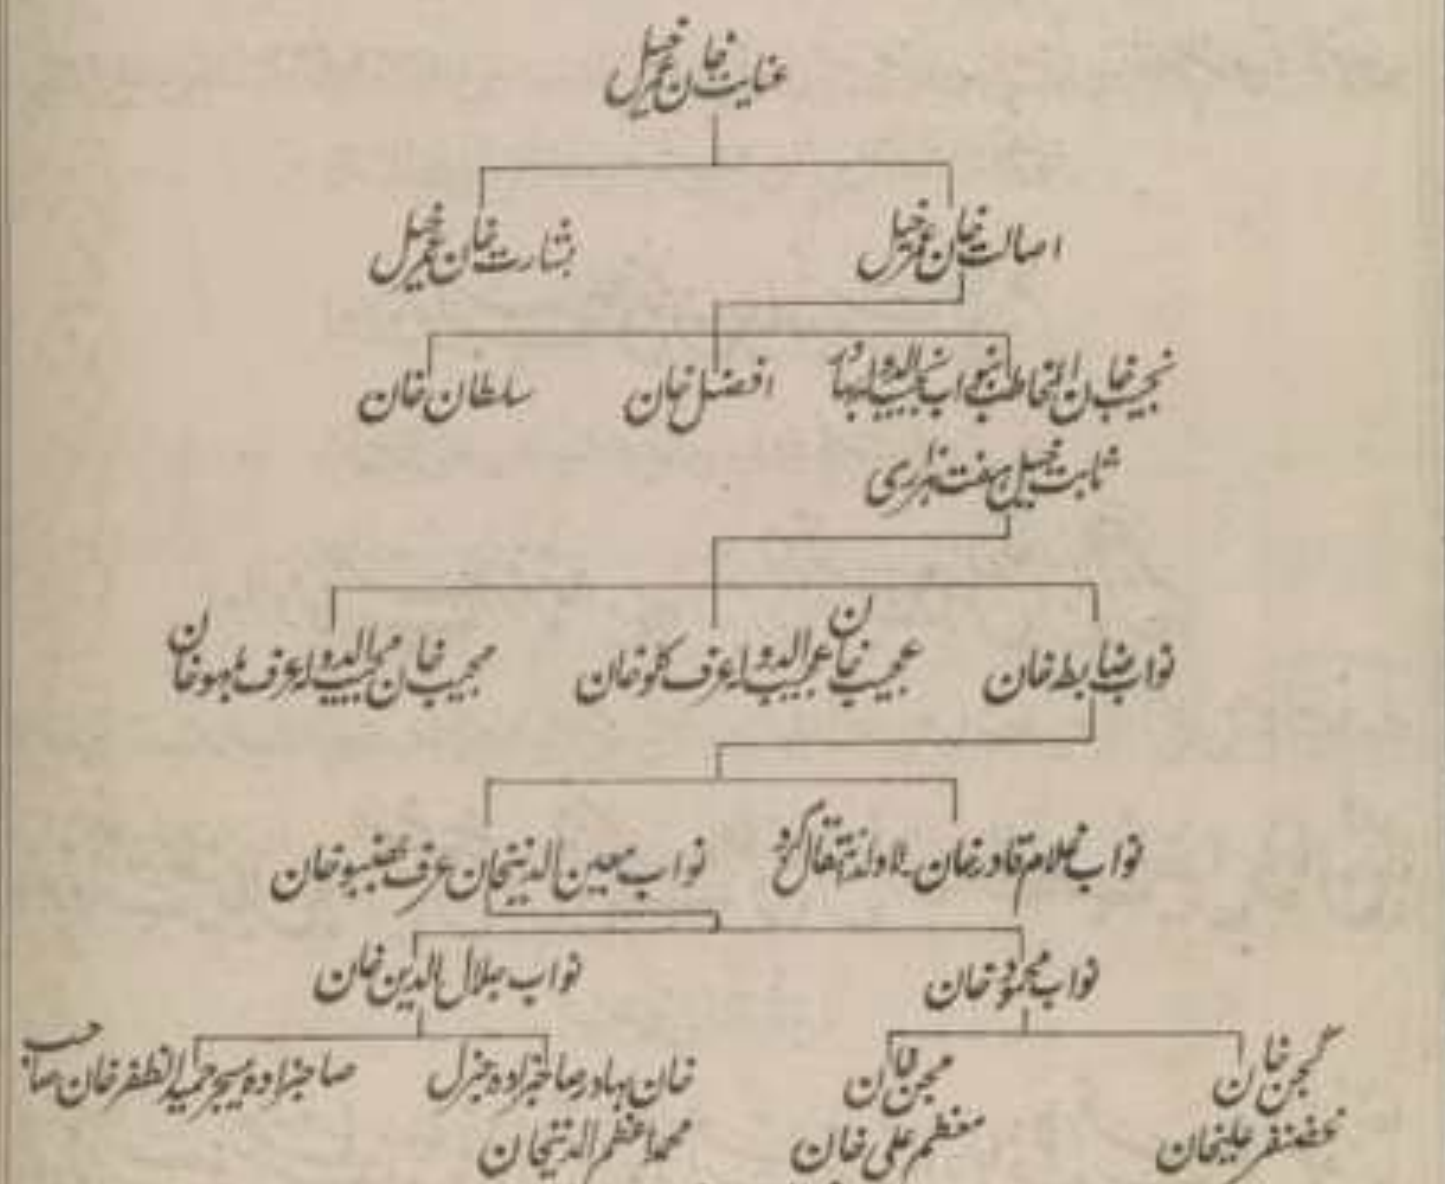 عنایت خان عمر خیل
اصالت خان عمر خیل
بشارت خان عمر خیل
نجیب خان المخاطب بنواب نجیب الدولہ بہادر
ثابت خیل ہفت ہزاری
افضل خان
سلطان خان
نواب ضابطہ خان
عجیب خان عجیب الدولہ عرف کلو خان
مجیب خان مجیب الدولہ عرف ملہو خان
نواب غلام قادر خان۔ لاولد انتقال کرد
نواب معین الدینخان عرف بھنبو خان
نواب محمود خان
نواب جلال الدین خان
گجن خان
غضنفر علیخان
مجن خان
معظم علی خان
خان بہادر صاحبزادہ جنرل
محمد اعظم الدینخان
صاحبزادہ میجر حمید الظفر خان صاحب